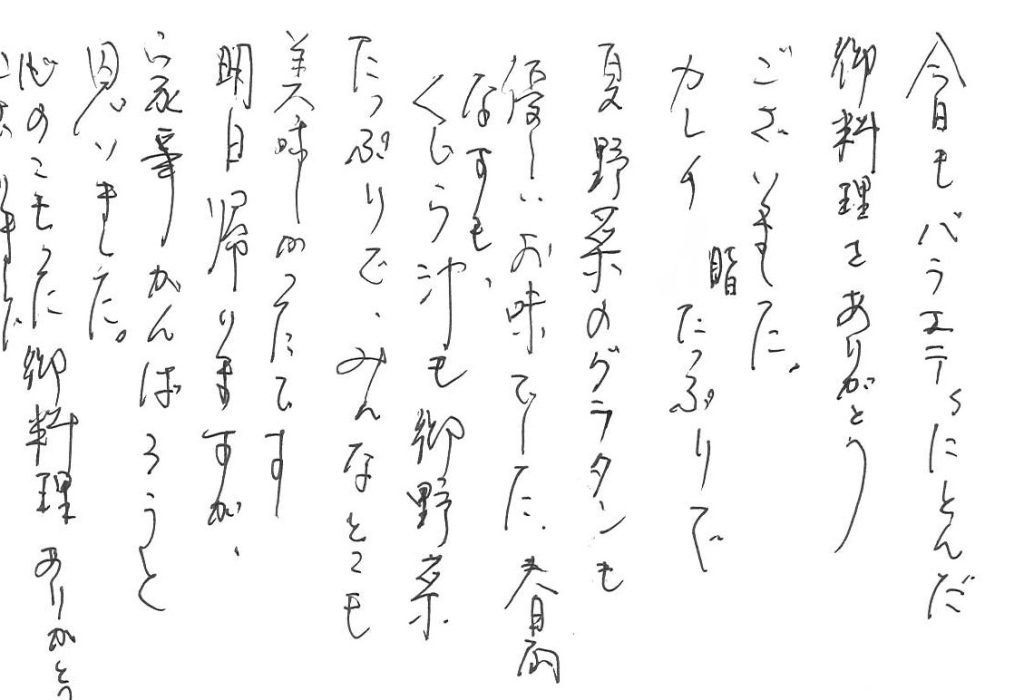 今日もバラエティにとんだ
御料理をありがとう
ございました。
カレイ 脂 たっぷりで
夏野菜のグラタンも
優しいお味でした、春雨
なすも、
くじら汁も御野菜
たっぷりで、みんなとても
美味しかったです
明日帰りますが、
家事がんばろうと
思いました。
心のこもった御料理ありがとう